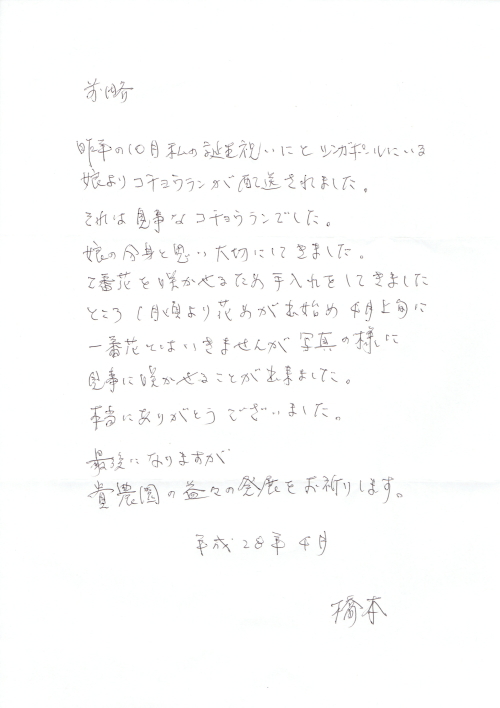 前略
昨年の10月私の誕生祝いにとシンガポールにいる
娘よりコチョウランが配送されました。
それは見事なコチョウランでした。
娘の分身と思い大切にしてきました。
2番花を咲かせるため手入れをしてきました
ところ1月頃より花めが出始め4月上旬に
一番花とはいきませんが写真の様に
見事に咲かせることが出来ました。
本当にありがとうございました。
最後になりますが
貴農園の益々の発展をお祈りします。
平成28年4月
橋本